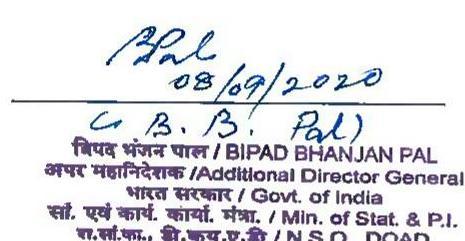 BPal
08/09/2020
( B. B. Pal)
बिपद भंजन पाल / BIPAD BHANJAN PAL
अपर महानिदेशक /Additional Director General
भारत सरकार / Govt. of India
सां. एवं कार्य. कार्या. मंत्रा. / Min. of Stat. & P.I.
रा.सां.का., डी.क्यू.ए.डी / N.S.O., DQAD